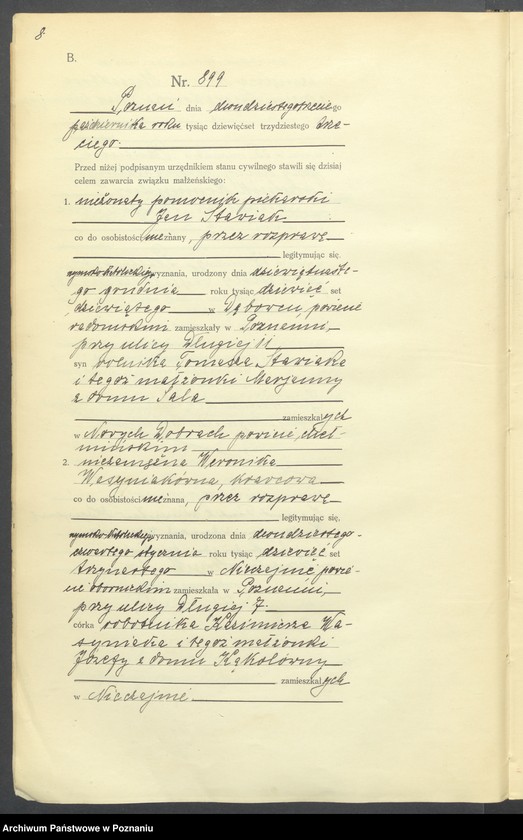 8
B.
Nr. 899
Poznań dnia dwudziestegotrzeciego
października roku tysiąc dziewięćset trzydziestego trze-
ciego.
Przed niżej podpisanym urzędnikiem stanu cywilnego stawili się dzisiaj
celem zawarcia związku małżeńskiego:
1. nieżonaty pomocnik piekarski
Jan Stawiak
co do osobistości nieznany, przez rozprawę
legitymując się.
rzymsko-katolickiego wyznania, urodzony dnia dziewiętnaste-
go grudnia roku tysiąc dziewięć set
dziewiątego w Dąbowcu, powiecie
radomskim zamieszkały w Poznaniu,
przy ulicy Długiej 11
syn rolnika Tomasza Stawiaka
i tegoż małżonki Marjanny
z domu Sala
zamieszkałych
w Nowych Dobrach powiecie cheł-
mińskim
2. niezamężna Weronika
Wasyniakówna, krawcowa
co do osobistości nieznana, przez rozprawę
legitymując się,
rzymsko-katolickiego wyznania, urodzona dnia dwudziestego-
czwartego stycznia roku tysiąc dziewięć set
trzynastego w Nieczajnie powie-
cie obornickim zamieszkała w Poznaniu,
przy ulicy Długiej 7.
córka robotnika Kazimierza Wa-
syniaka i tegoż małżonki
Józefy z domu Kąkolówny
zamieszkałych
w Nieczajnie
Archiwum Państwowe w Poznaniu